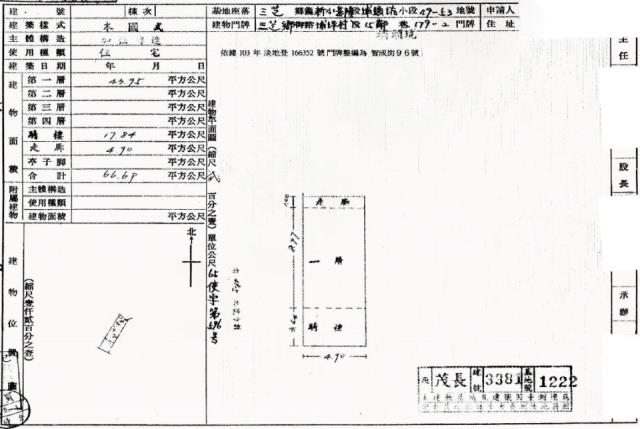 建號
棟次
建築樣式 本國式
主體構造
使用種類 住宅
建築日期 年 月 日
建物面積
第一層 43.95 平方公尺
第二層 平方公尺
第三層 平方公尺
第四層 平方公尺
騎樓 17.84 平方公尺
走廊 4.90 平方公尺
亭子腳 平方公尺
合計 66.69 平方公尺
附屬建物
主體構造
使用種類
建物面積 平方公尺
建物位置圖
(縮尺壹仟貳百分之壹)
北
基地座落 三芝 小段 49-53 地號
建物門牌 三芝鄉 埔坪村 15鄰 179-2 門牌
申請人
住址
依據 103 年 淡地登 166352 號門牌整編為 智成街96號
建物平面圖(縮尺 貳百分之壹)單位公尺
65使字第596號
走廊
一層
騎樓
8.97
4.90
主任
股長
承辦
段 茂長 建號 3381 基地號 1222